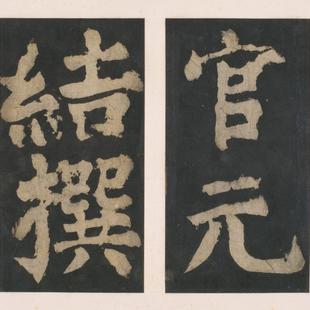 官元
結撰